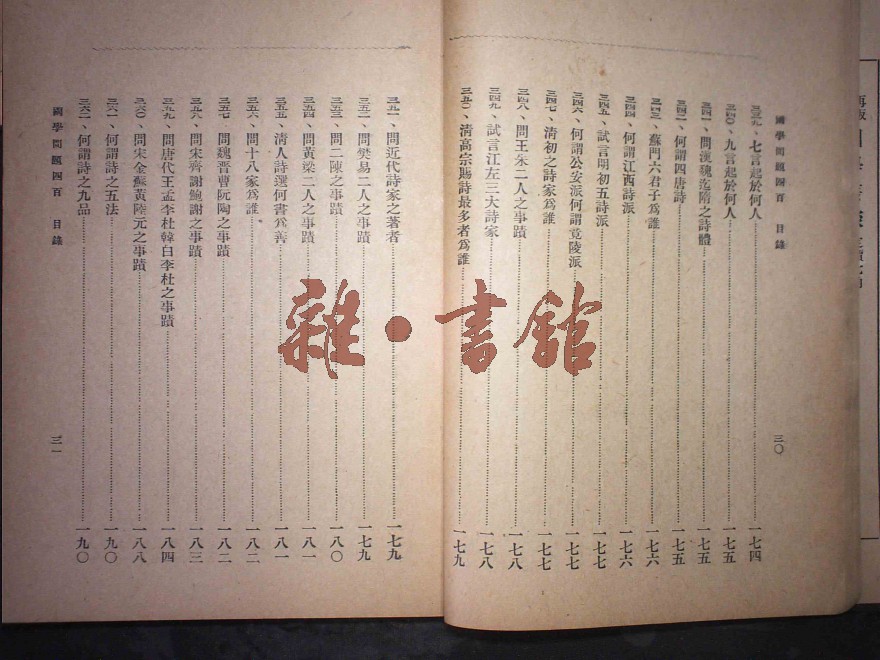 國學問題四百 目錄
三三九、七言起於何人 一七四
三四〇、九言起於何人 一七五
三四一、問漢魏迄隋之詩體 一七五
三四二、何謂四唐詩 一七五
三四三、蘇門六君子爲誰 一七六
三四四、何謂江西詩派 一七六
三四五、試言明初五詩派 一七七
三四六、何謂公安派何謂竟陵派 一七七
三四七、清初之詩家爲誰 一七七
三四八、問王朱二人之事蹟 一七八
三四九、試言江左三大詩家 一七八
三五〇、清高宗賜詩最多者爲誰 一七九
三〇
三五一、問近代詩家之著者 一七九
三五二、問樊易二人之事蹟 一七九
三五三、問二陳之事蹟 一八〇
三五四、問黃梁二人之事蹟 一八一
三五五、清人詩選何書爲善 一八一
三五六、問十八家爲誰 一八二
三五七、問魏晉曹阮陶之事蹟 一八二
三五八、問宋齊謝鮑謝之事蹟 一八三
三五九、問唐代王孟李杜韓白李杜之事蹟 一八四
三六〇、問宋金蘇黃陸元之事蹟 一八八
三六一、何謂詩之五法 一九〇
三六二、何謂詩之九品 一九〇
國學問題四百 目錄
三一
雜·書館